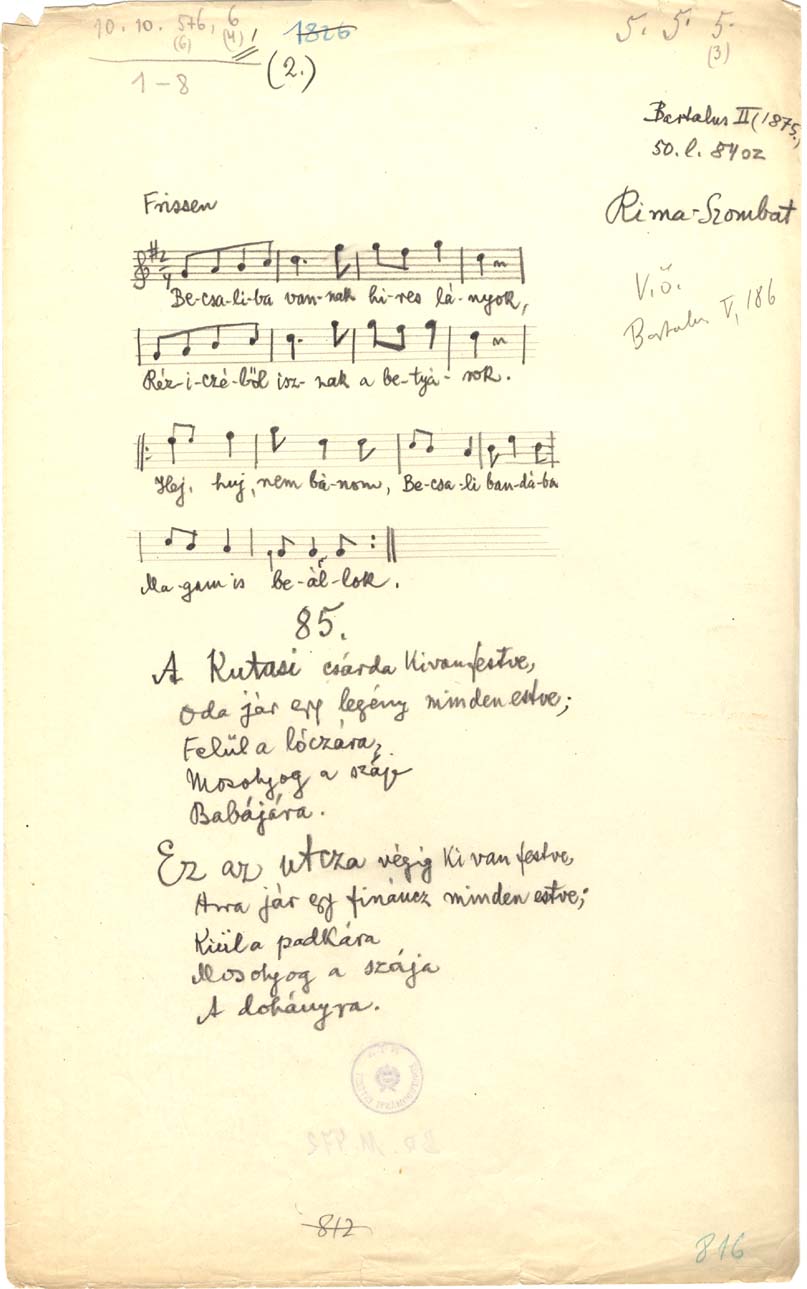 10. 10. 5+6, 6
(6) (4)
1826
5. 5. 5.
(3)
1-8
(2.)
Bartalus II (1875.)
50. l. 84 oz
Frissen
Rima-Szombat
2/4
Be-csa-li-ba van-nak hi-res lá-nyok,
V.ö.
Bartalus V, 186
Réz-i-czé-ből isz-nak a be-tyá-rok.
Hej, huj, nem bá-nom, Be-csa-li ban-dá-ba
Ma-gam is be-ál-lok.
85.
A Kutasi csárda kivan festve,
Oda jár egy legény minden estve;
Felül a lóczára,
Mosolyog a szája
Babájára.
Ez az utcza végig ki van festve,
Arra jár egy fináncz minden estve;
Kiül a padkára
Mosolyog a szája
A dohányra.
812
816